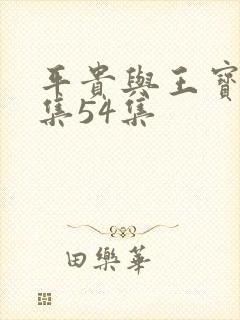 平貴與王寶
集54集
田樂華